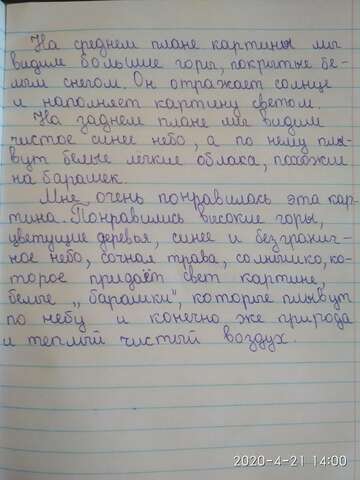 На среднем плане картины мы
видим большие горы, покрытые бе-
лым снегом. Он отражает солнце
и наполняет картину светом.
На заднем плане мы видим
чистое синее небо, а по нему плы-
вут белые легкие облака, похожие
на барашек.
Мне очень понравилась эта кар-
тина. Понравились високие горы,
цветущие деревья, синее и безгранич-
ное небо, сочная трава, солнышко, ко-
торое придаёт свет картине,
белые „барашки", которые плывут
по небу и конечно же природа
и теплый чистый воздух.
2020-4-21 14:00